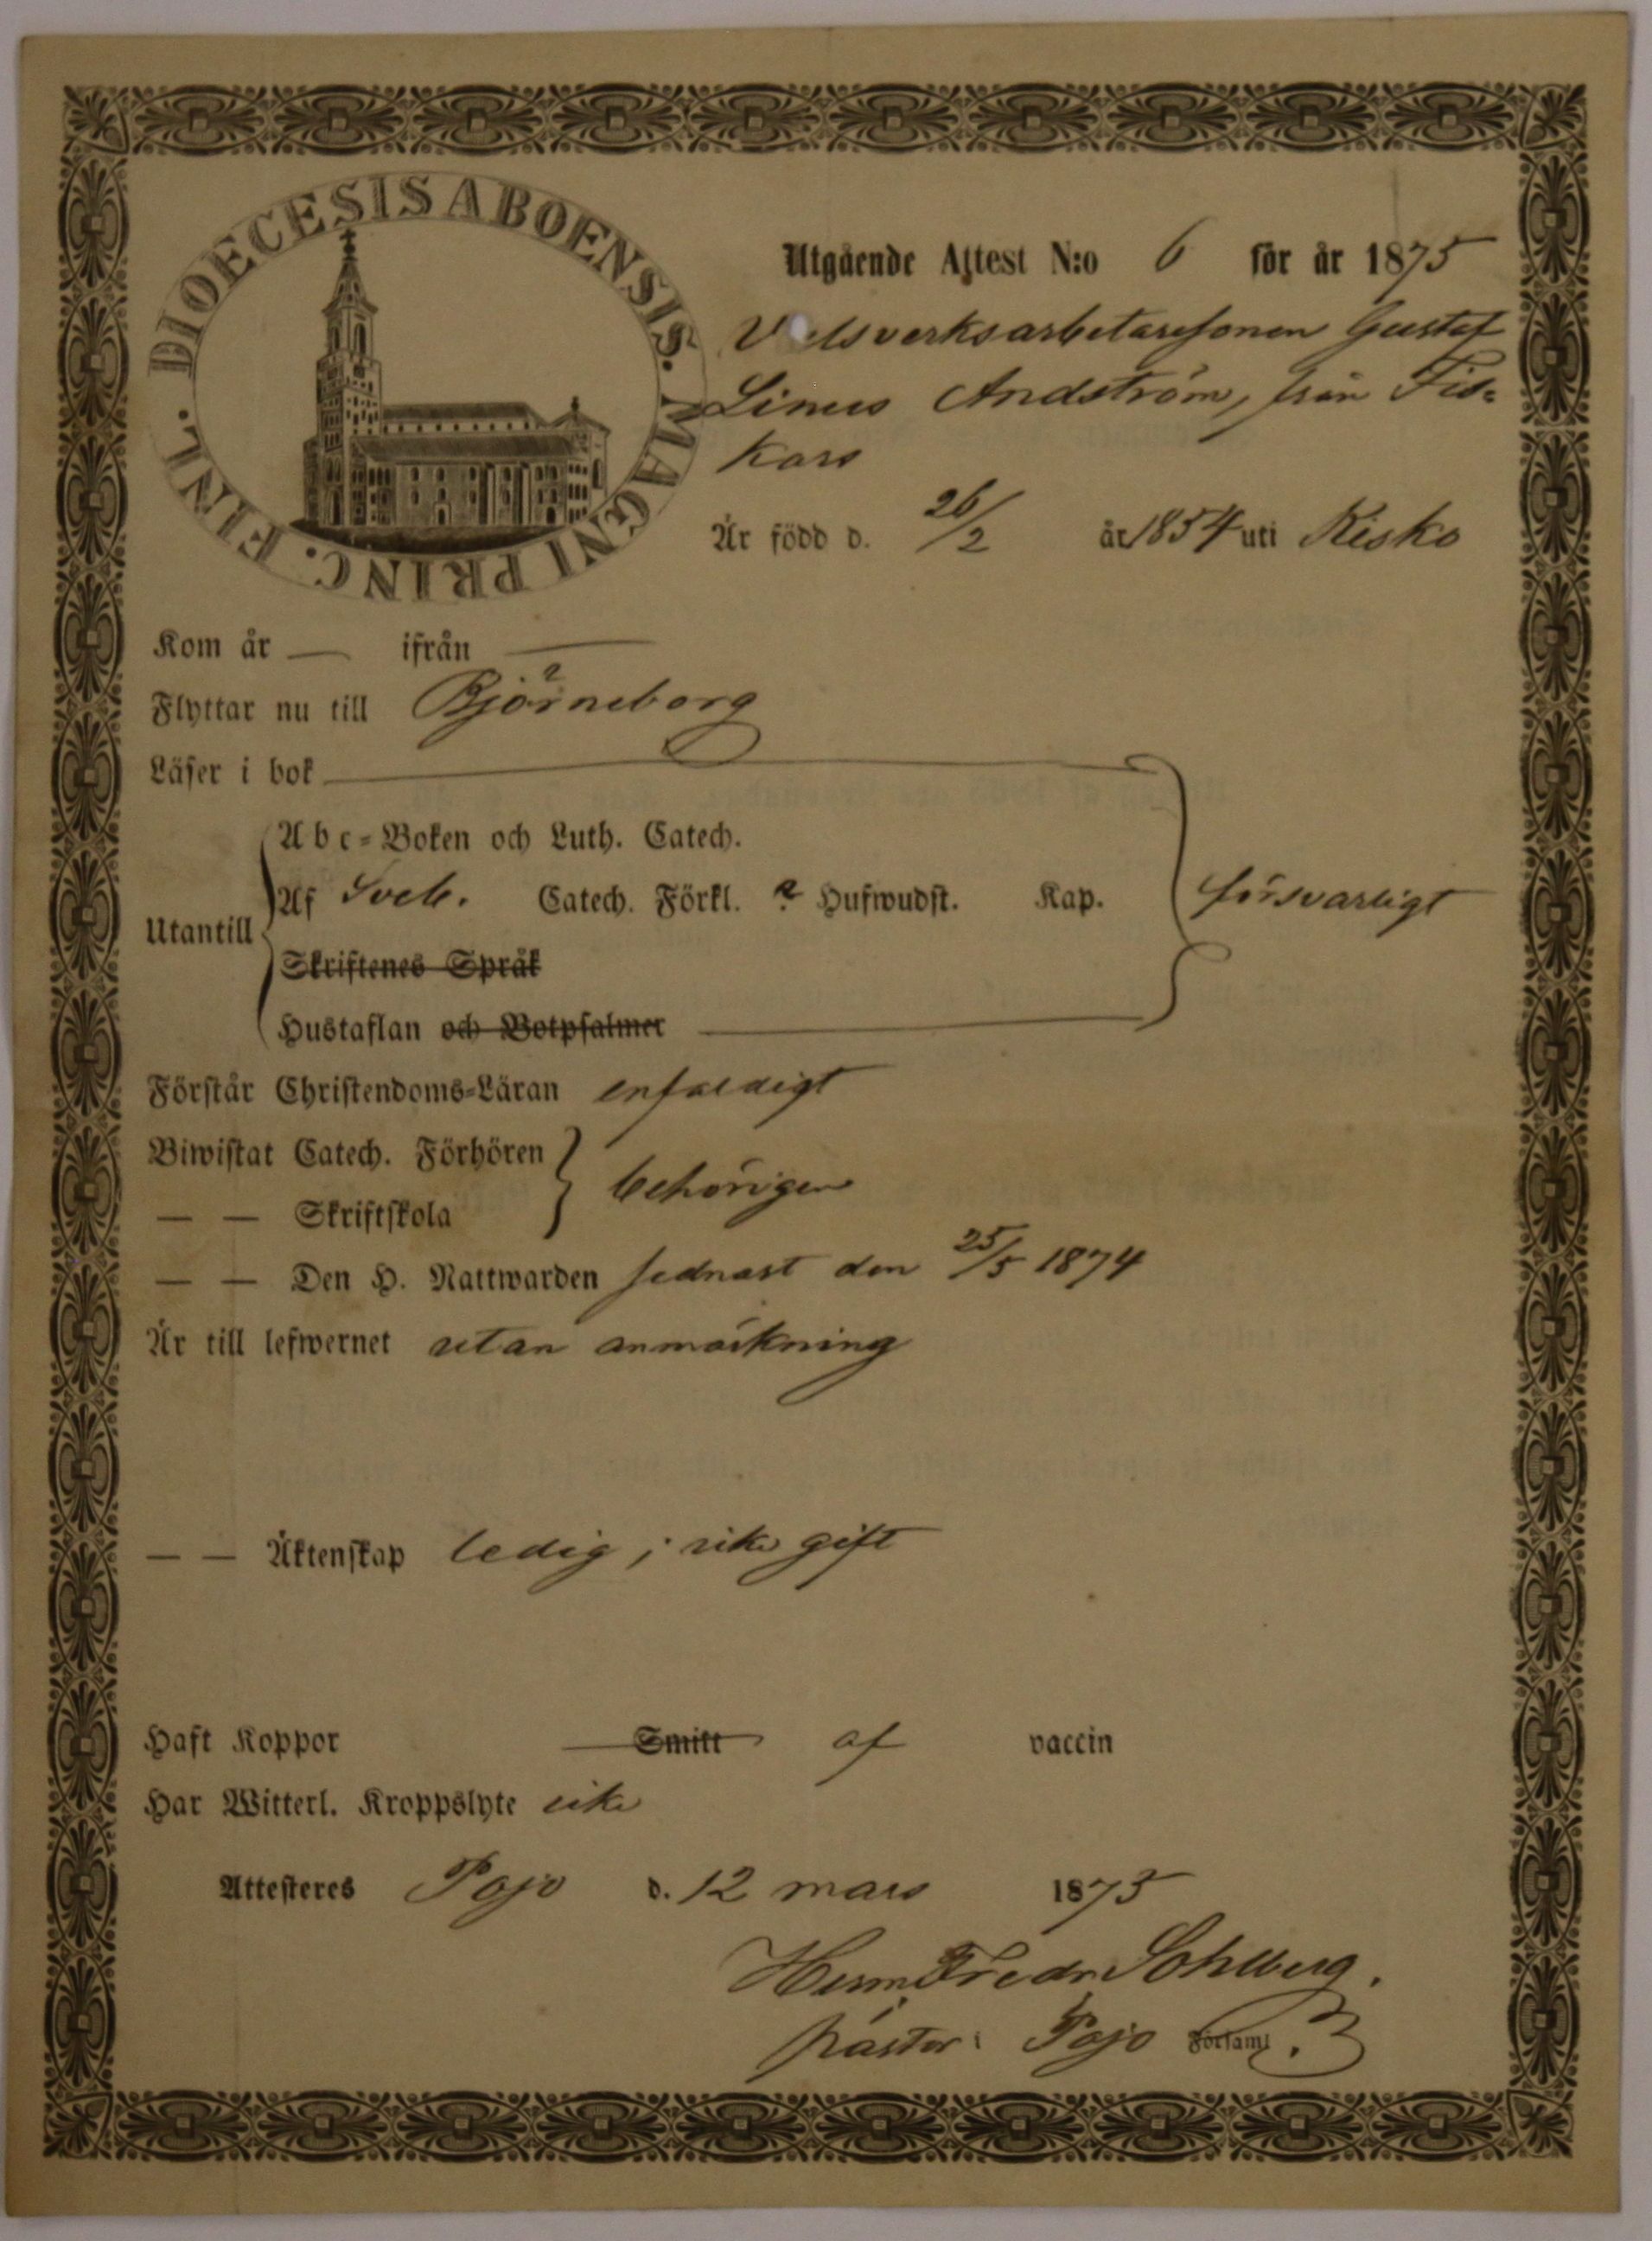 DIOECESIS ABOENSIS. MAGNI PRINC. FINL.
Utgående Attest N:o 6 för år 1875
Valsverksarbetaresonen Gustaf
Linus Andström, från Fis=
kars
Är född d. 26/2 år 1854 uti Kisko
Kom år — ifrån —
Flyttar nu till Björneborg
Läser i bok
Abc=Boken och Luth. Catech.
Af Sveb. Catech. Förkl. Hufwudst. Kap. försvarligt
Utantill
Skriftenes Språk
Hustaflan och Botpsalmer
Förstår Christendoms=Läran enfaldigt
Biwistat Catech. Förhören
behörigen
— — Skriftskola
— — Den H. Nattwarden sednast den 25/5 1874
Är till lefwernet utan anmärkning
— — Äktenskap ledig; icke gift
Haft Koppor Smitt af vaccin
Har Witterl. Kroppslyte icke
Attesteres Pojo d. 12 mars 1875
Herm Fredr Sohlberg.
pastor i Pojo Församl.